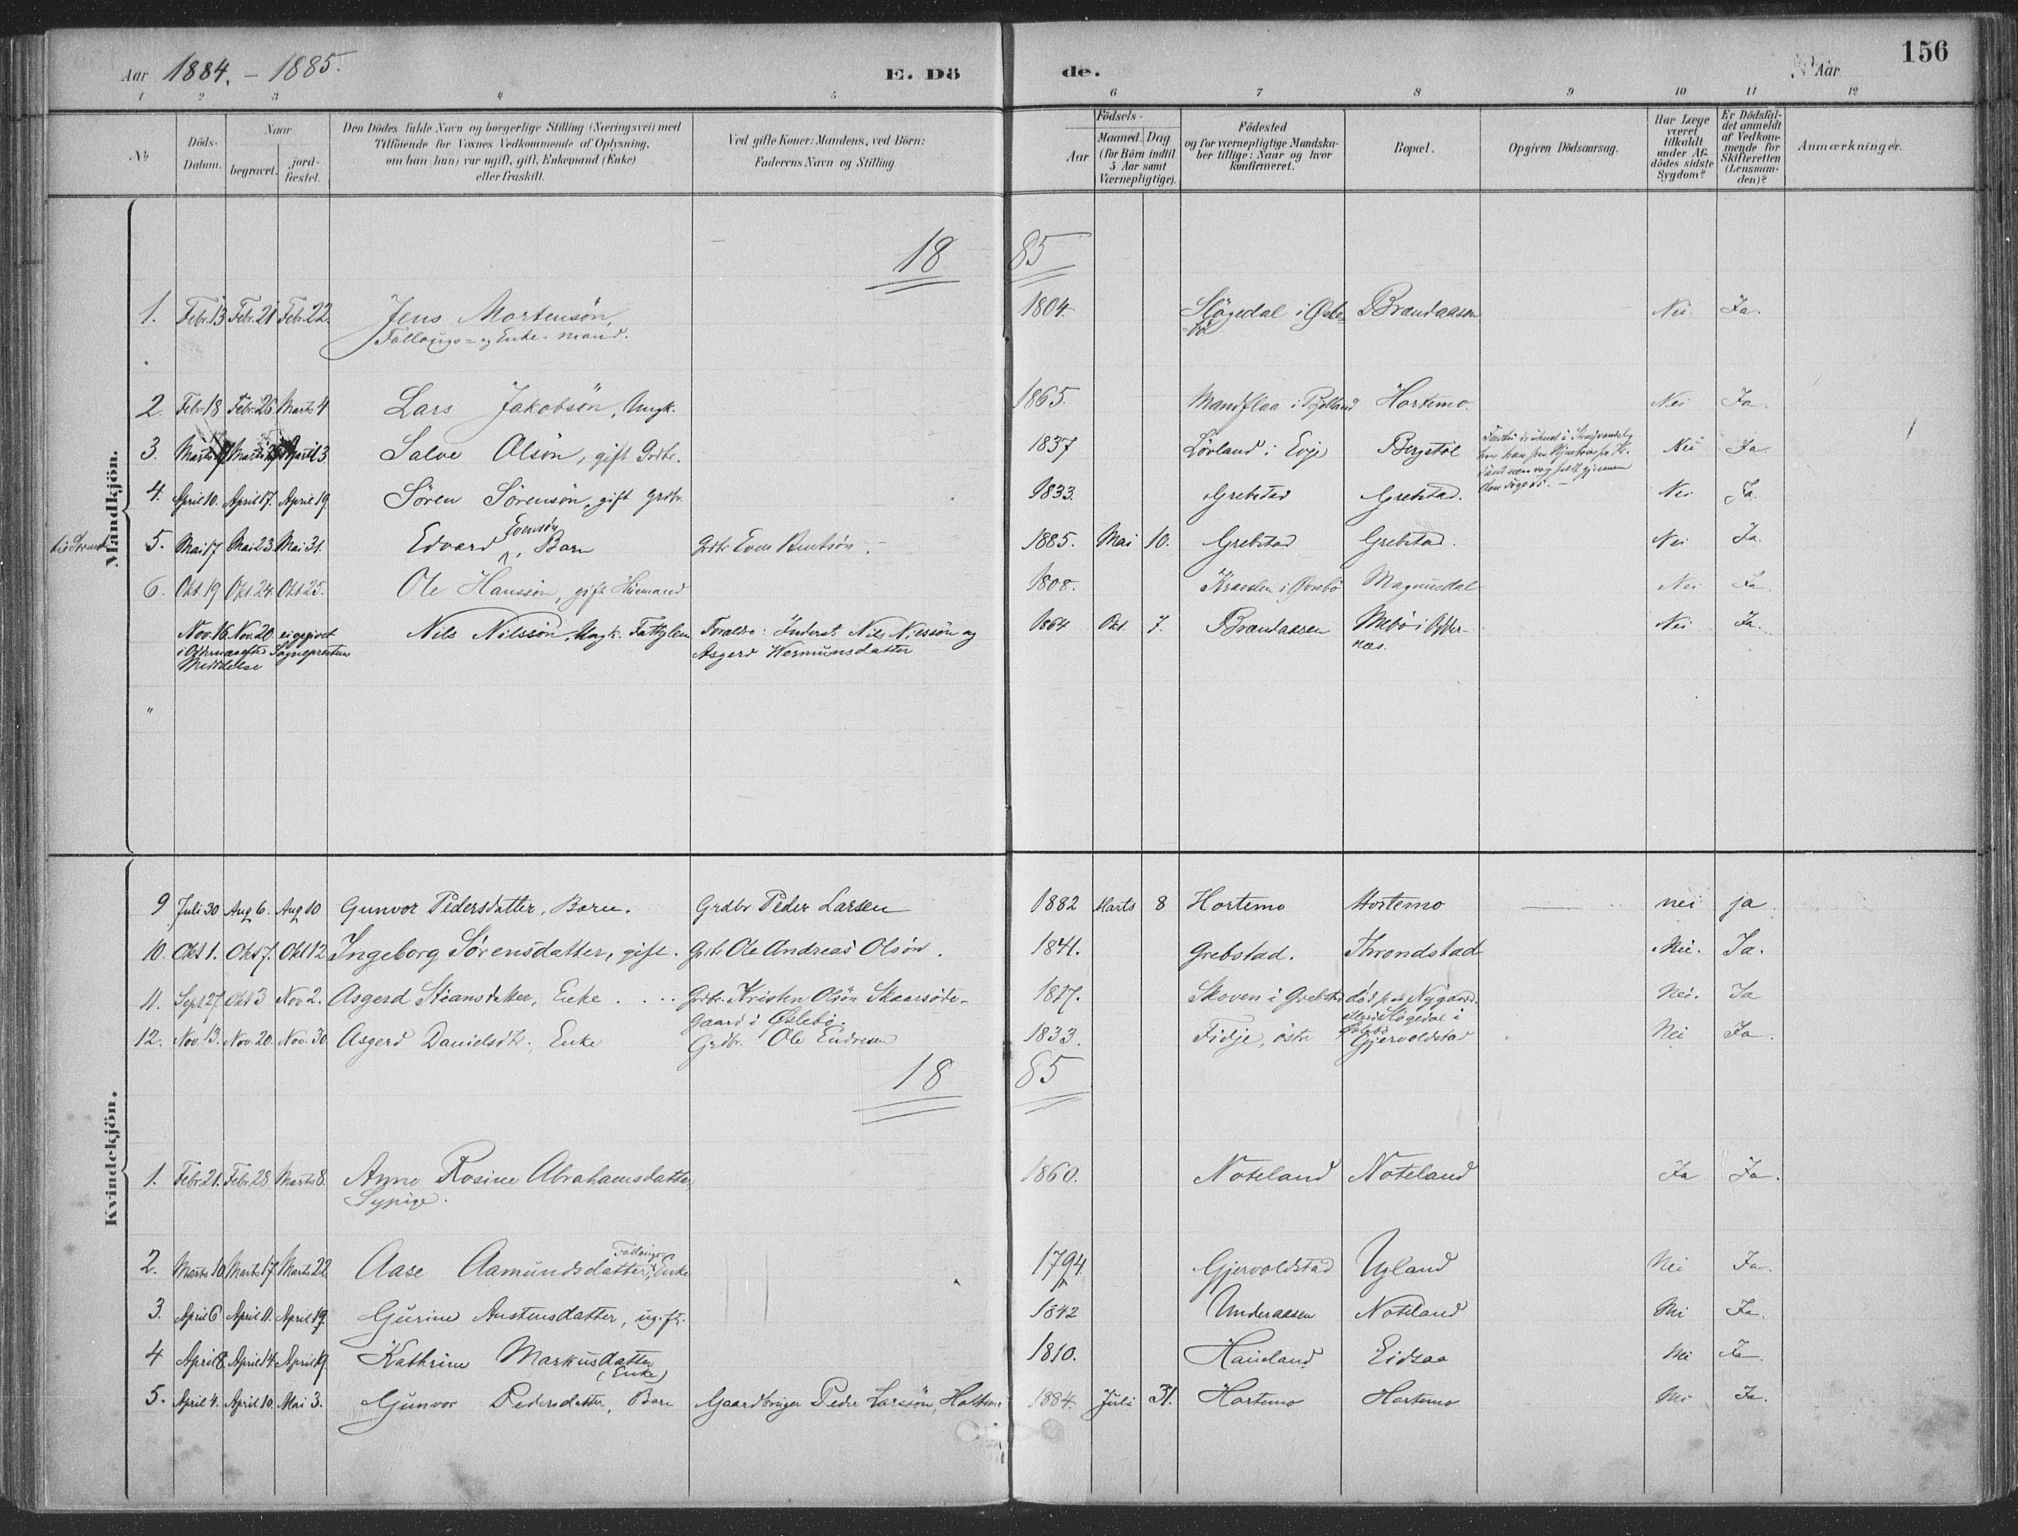 Aar 1884. - 1885. E. Dö de. Aar 156
1 2 3 4 5 6 7 8 9 10 11 12
No
Döds-Datum.
Naar
begravet.
jord-fæstet.
Den Dödes fulde Navn og borgerlige Stilling (Næringsvei) med
Tilföiende for Voxnes Vedkommende af Oplysning,
om han (hun) var ugift, gift, Enkemand (Enke)
eller fraskilt.
Ved gifte Koner: Mandens, ved Börn:
Faderens Navn og Stilling
Födsels-
Aar
Maaned. Dag
(for Börn indtil
5 Aar samt
Værnepligtige).
Födested
og for værnepligtige Mandska-
ber tillige: Naar og hvor
konfirmeret.
Bopæl.
Opgiven Dödsaarsag.
Har Læge
været
tilkaldt
under Af-
dödes sidste
Sygdom?
Er Dödsfal-
det anmeldt
af Vedkom-
mende for
Skifteretten
(Lensman-
den)?
Anmærkninger.
Mandkjön.
18 85
1. Febr. 13 Febr. 21 Febr. 22. Jens Mortensön, 1804. Høgedal i Øsle- Brandaasen Nei. Ja.
-bö
Fattigs- og Enkemand.
2. Febr. 18 Febr. 26 Marts 4 Lars Jakobsön, Ungk. 1865. Mandflaa i Bjelland Hortemo. Nei Ja.
3. Salve Olsön, gift Grdbr. 1837 Lövland i Evje Bergstöl Nei Ja.
4. April 10. April 17. April 19. Sören Sörensön, gift Grdbr. 1833. Grebstad Grebstad. Nei Ja.
5. Mai 17 Mai 23. Mai 31. Edvard Evensön, Barn Grdbr. Even 1885. Mai 10. Grebstad Grebstad. Nei Ja.
6. Okt. 19 Okt. 24. Okt 25. Ole Hanssön, gift 1808. i Øvrebö Magnusdal Nei Ja
Nov. 16. Nov. 20. ei opgivet Nils Nilssön, Ungk. Forældre: Inderst Nils og 1864 Okt 7. Brandaasen Mebö i Odder- Nei Ja.
Sognepresten Asgerd Wermunsdatter næs.
Meddelse
"
Kvindekjön.
9 Juli 30 Aug 6. Aug 10 Gunvor Pedersdatter, Barn. Grdbr Peder Larsen 1882 Marts 8 Hortemo Hortemo nei ja
10. Okt 1. Okt 7. Okt 12 Ingeborg Sørensdatter, gift. Grdbr Ole Andreas Olsön. 1841. Grebstad. Throndstad Nei. Ja.
11. Sept 27. Okt 3 Nov 2. Asgerd Enke Grdbr. Kristen Olsön Skaarsöde- 1817. Skoven i Grebstad død paa Nygaard Nei. Ja
gaard i Øslebö. Høgedal i
Øslebö
12. Nov 13. Nov. 20. Nov. 30 Asgerd Danielsdtr. Enke Grdbr. Ole Endresen 1833. Fidje, östre Gjervoldstad Nei Ja.
18 85
1. Febr. 21. Febr. 28 Marts 8. Anne Rosine Abrahamsdatter, 1860. Noteland Noteland Ja Ja.
Sypige.
2. Marts 10 Marts 17 Marts 22 Aase Aamundsdatter, Fattigs- Enke 1794 Gjervoldstad Ugland Nei Ja.
3. April 6 April 11. April 19. Gurine Austensdatter, ugift. 1842 Underaasen Noteland Nei Ja.
4 April 8. April 14. April 19. Kathrine Markusdatter 1810. Haueland Eidsaa Nei Ja.
(Enke)
5. April 4. April 10. Mai 3. Gunvor Pedersdatter, Barn Gaardbruger Peder Larssön, 1884. Juli 31. Hortemo Hortemo Nei Ja.